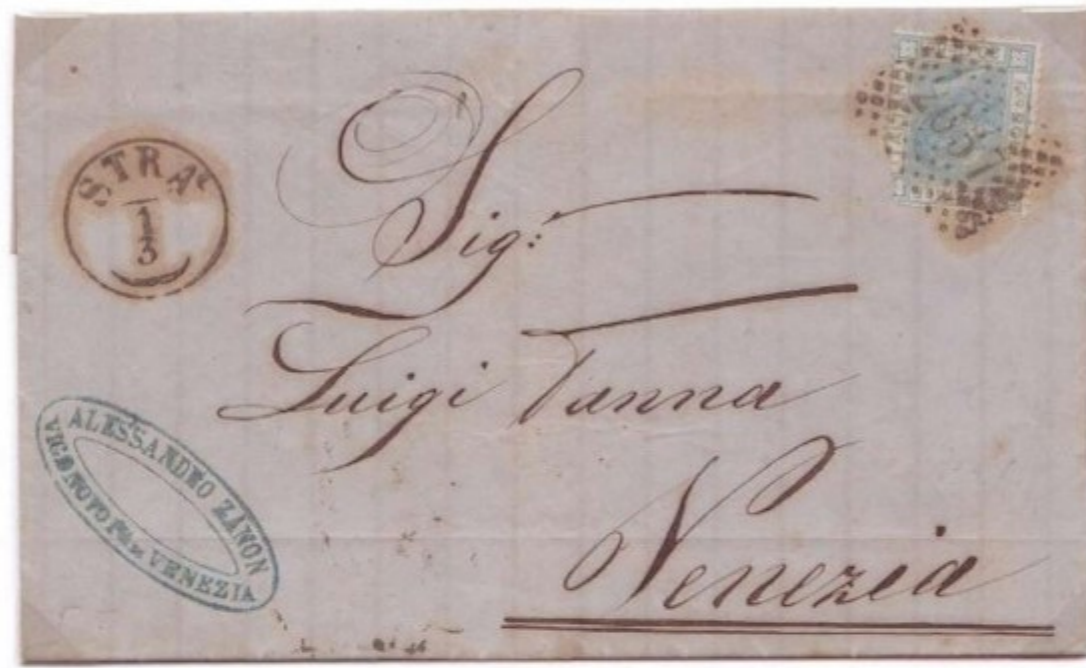 STRA
1
3
Sig:
Luigi Vanna
Venezia
ALESSANDRO ZANON
VIGONOVO VENEZIA